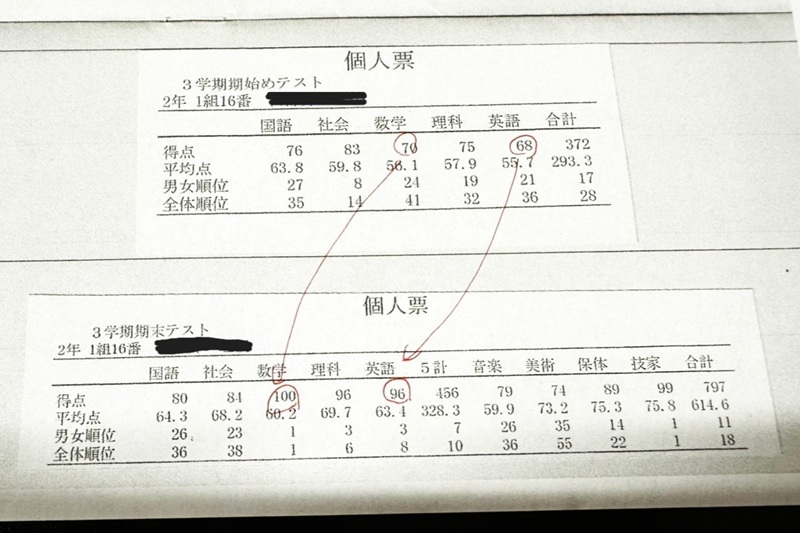 個人票
3学期期始めテスト
2年 1組16番
国語 社会 数学 理科 英語 合計
得点 76 83 70 75 68 372
平均点 63.8 59.8 56.1 57.9 55.7 293.3
男女順位 27 8 24 19 21 17
全体順位 35 14 41 32 36 28
個人票
3学期期末テスト
2年 1組16番
国語 社会 数学 理科 英語 5計 音楽 美術 保体 技家 合計
得点 80 84 100 96 96 456 79 74 89 99 797
平均点 64.3 68.2 60.2 69.7 63.4 328.3 59.9 73.2 75.3 75.8 614.6
男女順位 26 23 1 3 3 7 26 35 14 1 11
全体順位 36 38 1 6 8 10 36 55 22 1 18